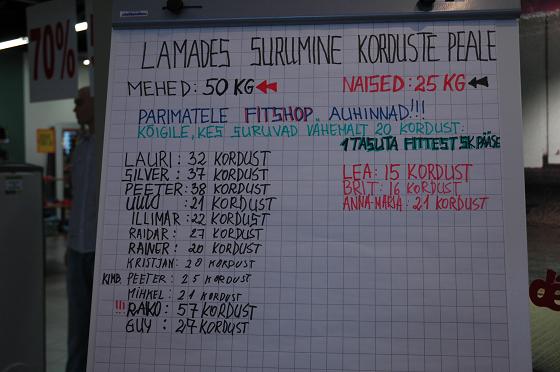 70%
LAMADES SURUMINE KORDUSTE PEALE
MEHED: 50 KG
NAISED: 25 KG
PARIMATELE FITSHOP AUHINNAD!!!
KÕIGILE, KES SURUVAD VÄHEMALT 20 KORDUST.
1 TASUTA FITTEST SK PÄÄSE
LAURI: 32 KORDUST
SILVER: 37 KORDUST
PEETER: 38 KORDUST
: 21 KORDUST
ILLIMAR: 22 KORDUST
RAIDAR: 27 KORDUST
RAINER: 20 KORDUST
KRISTJAN: 20 KORDUST
PEETER: 25 KORDUST
MIHKEL: 21 KORDUST
!!! RAKO: 57 KORDUST
GUY: 27 KORDUST
LEA: 15 KORDUST
BRIT: 16 KORDUST
ANNA-MARIA: 21 KORDUST